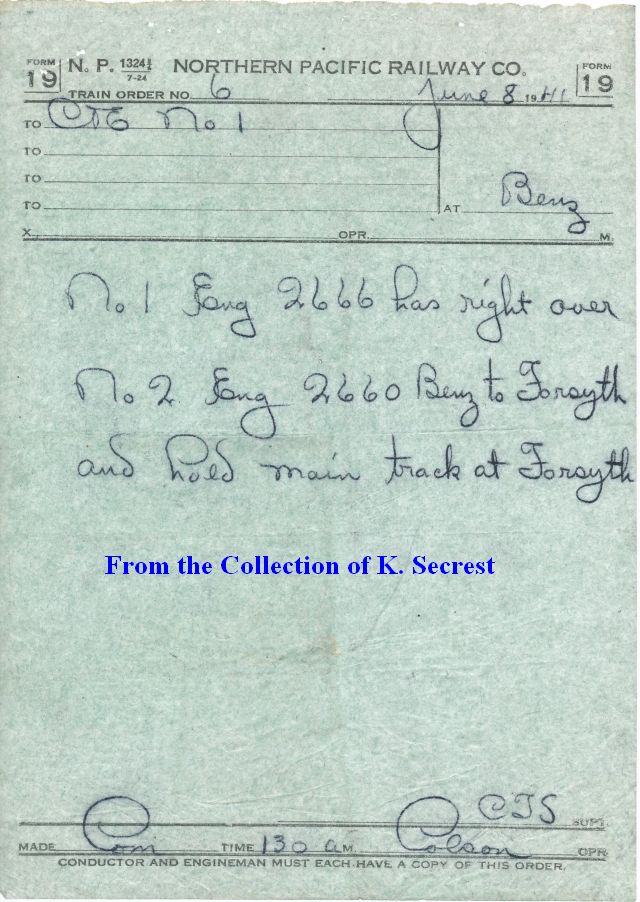 FORM 19 N. P. 1324½ 7-24 NORTHERN PACIFIC RAILWAY CO. FORM 19
TRAIN ORDER NO. 6 June 8 1941
TO C&E No 1
TO
TO
TO AT Benz
X OPR. M.
No 1 Eng 2666 has right over
No 2 Eng 2660 Benz to Forsyth
and hold main track at Forsyth
From the Collection of K. Secrest
CTS SUPT.
MADE Com TIME 130 a M. Colson OPR.
CONDUCTOR AND ENGINEMAN MUST EACH HAVE A COPY OF THIS ORDER.